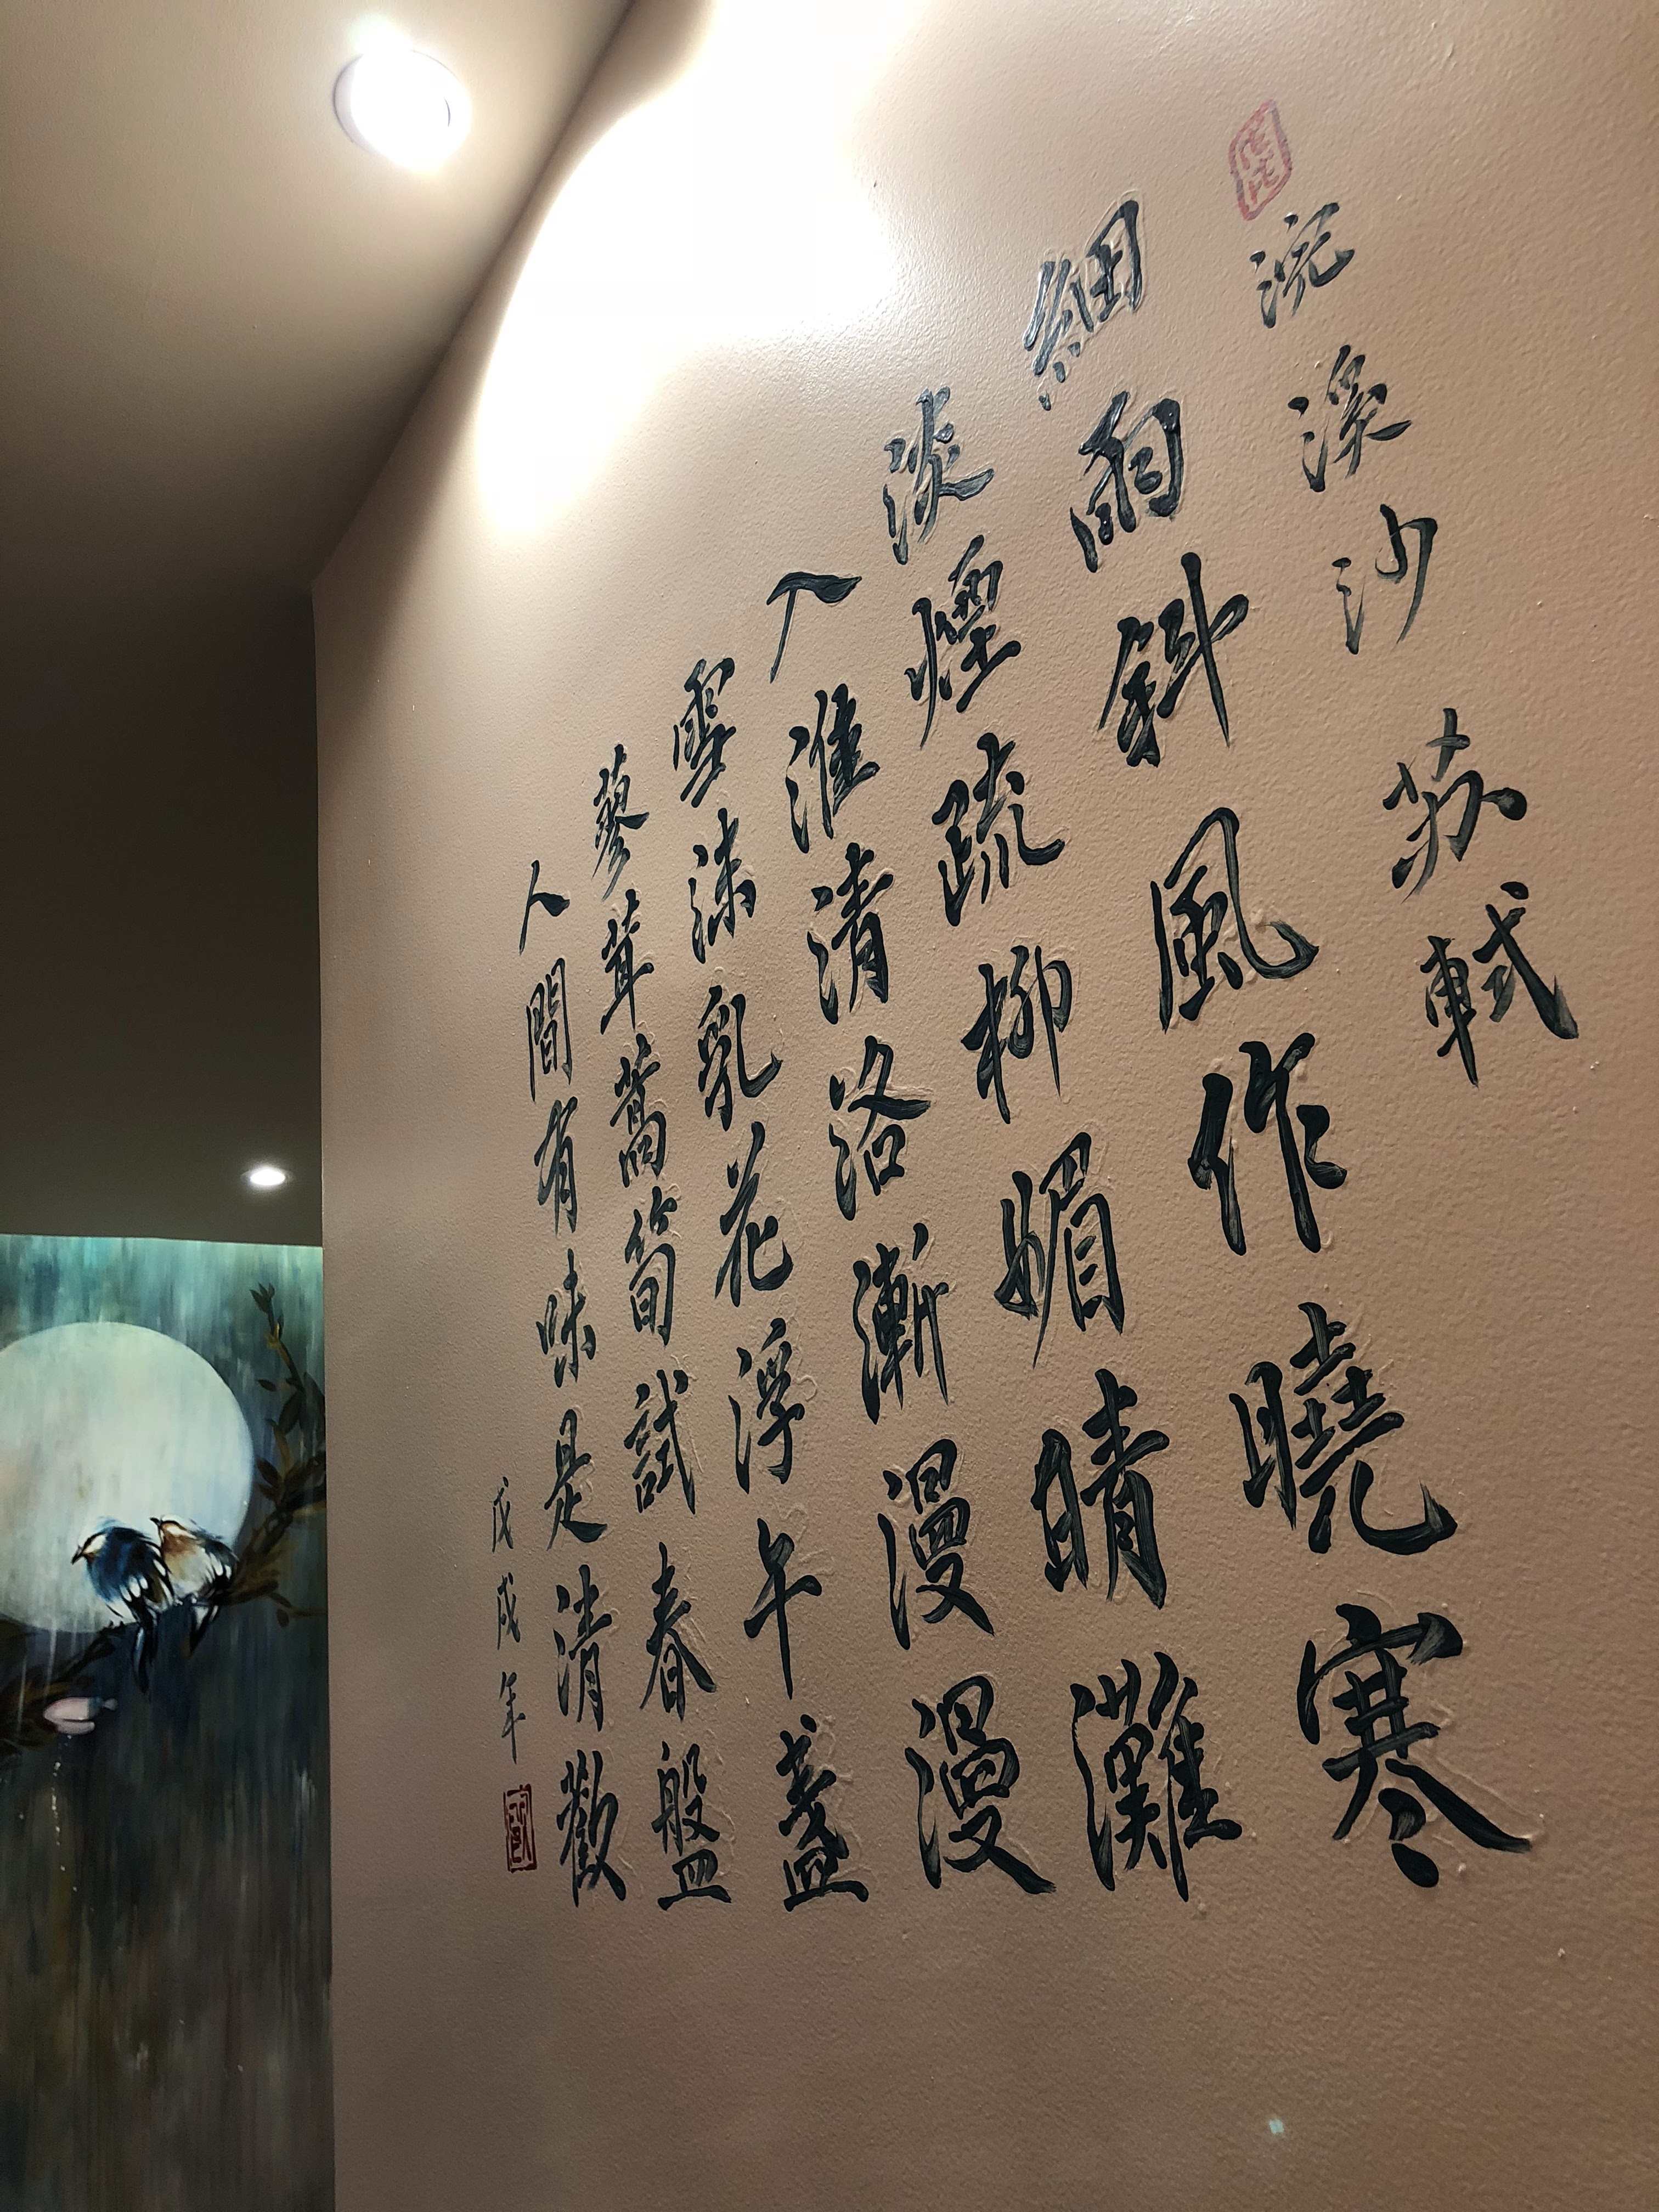 浣溪沙 苏軾
細雨斜風作曉寒
淡煙疏柳媚晴灘
入淮清洛漸漫漫
雪沫乳花浮午盞
蓼茸蒿筍試春盤
人間有味是清歡
戊戌年